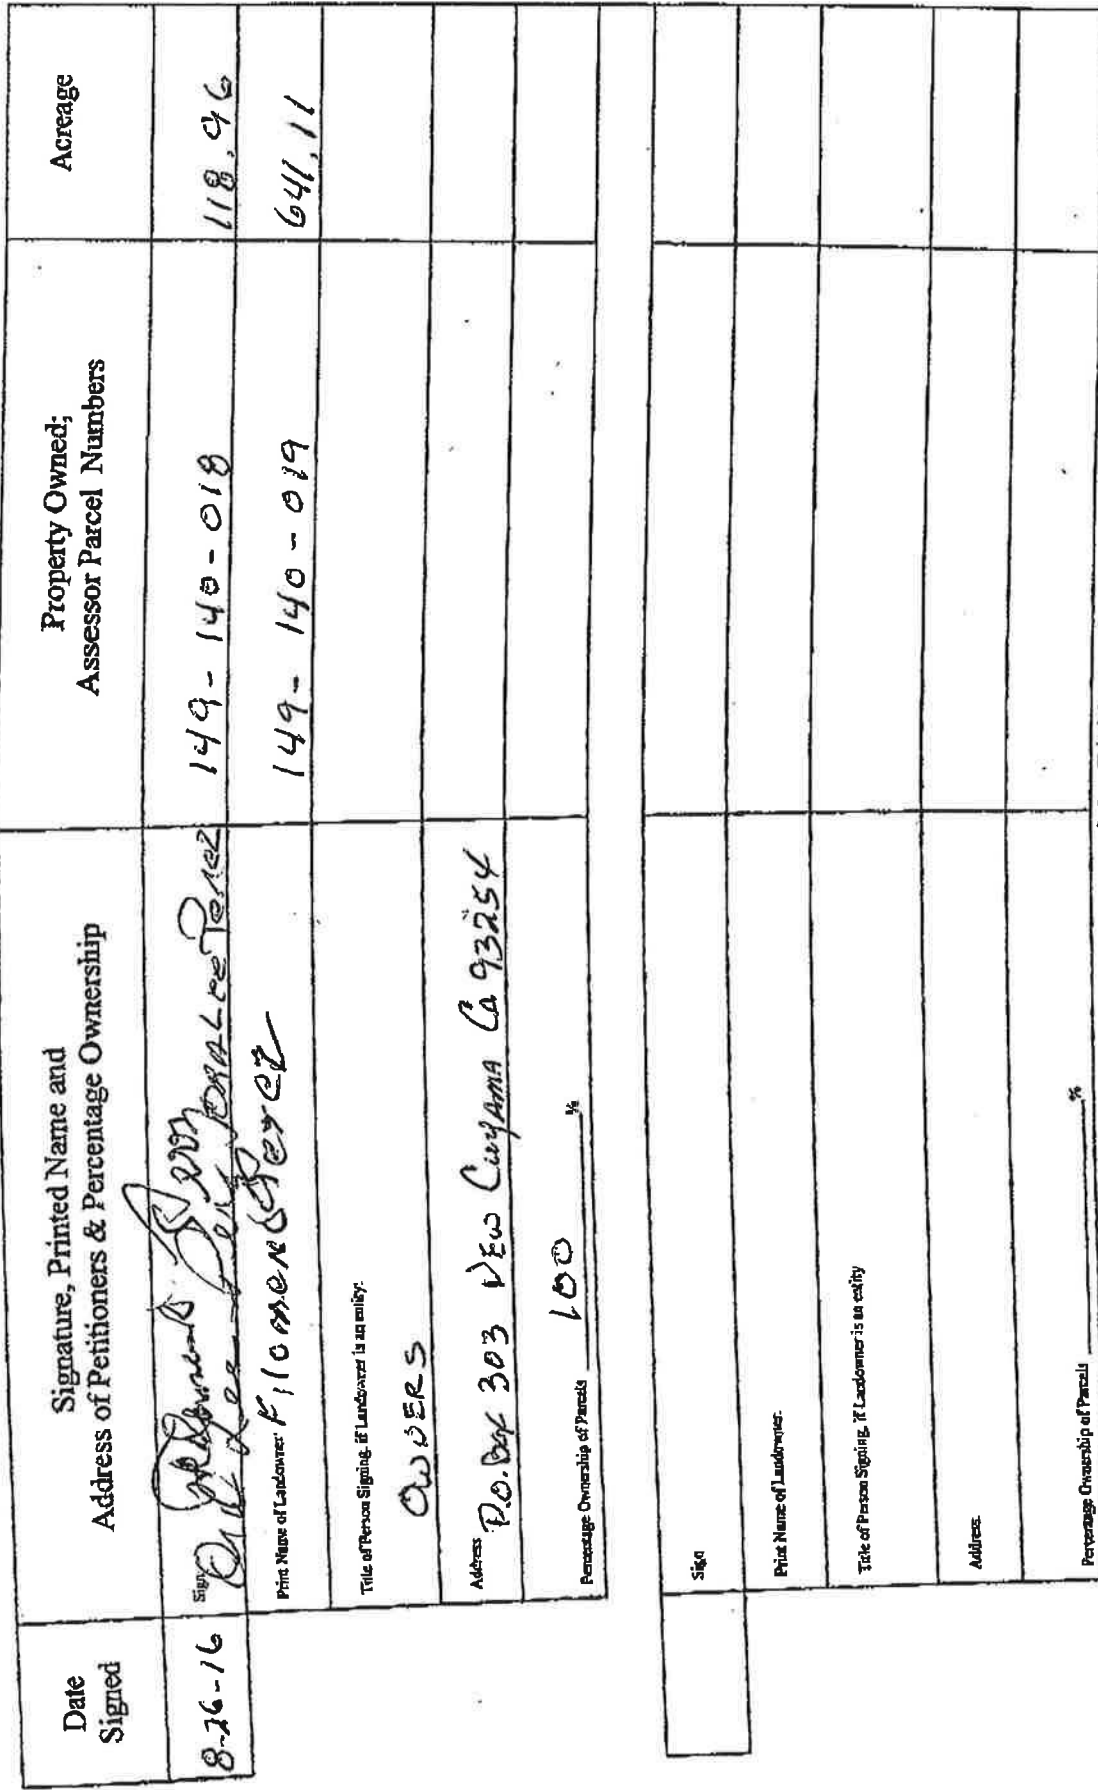 Date
Signed
Signature, Printed Name and
Address of Petitioners & Percentage Ownership
Property Owned;
Assessor Parcel Numbers
Acreage
8-26-16
Sign
Perez
149-140-018
118.96
Print Name of Landowner: Filomeno Perez
149-140-019
641.11
Title of Person Signing, if Landowner is an entity:
OWNERS
Address P.O. Box 303 NEW CUYAMA Ca 93254
Percentage Ownership of Parcels 100 %
Sign
Print Name of Landowner:
Title of Person Signing, if Landowner is an entity
Address:
Percentage Ownership of Parcels %